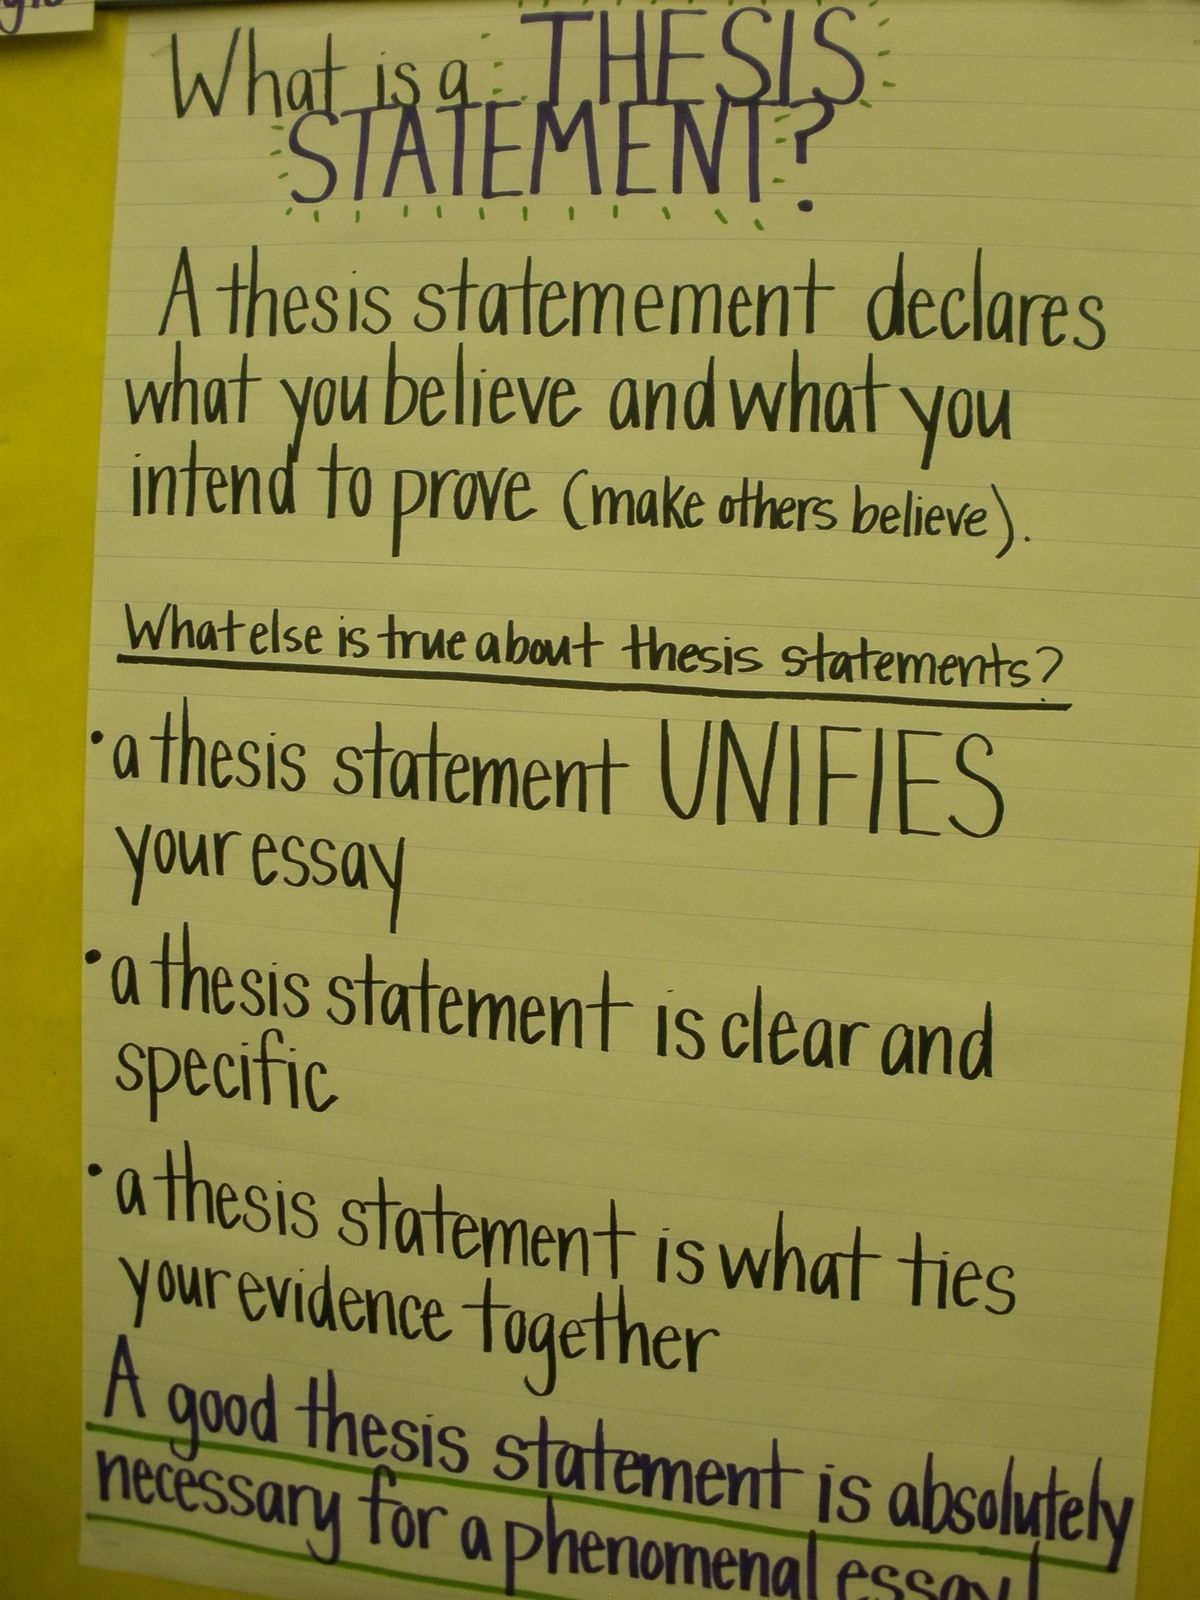 What is a THESIS
STATEMENT?
A thesis statemement declares
what you believe and what you
intend to prove (make others believe).
What else is true about thesis statements?
• a thesis statement UNIFIES
your essay
• a thesis statement is clear and
specific
• a thesis statement is what ties
your evidence together
A good thesis statement is absolutely
necessary for a phenomenal essay!